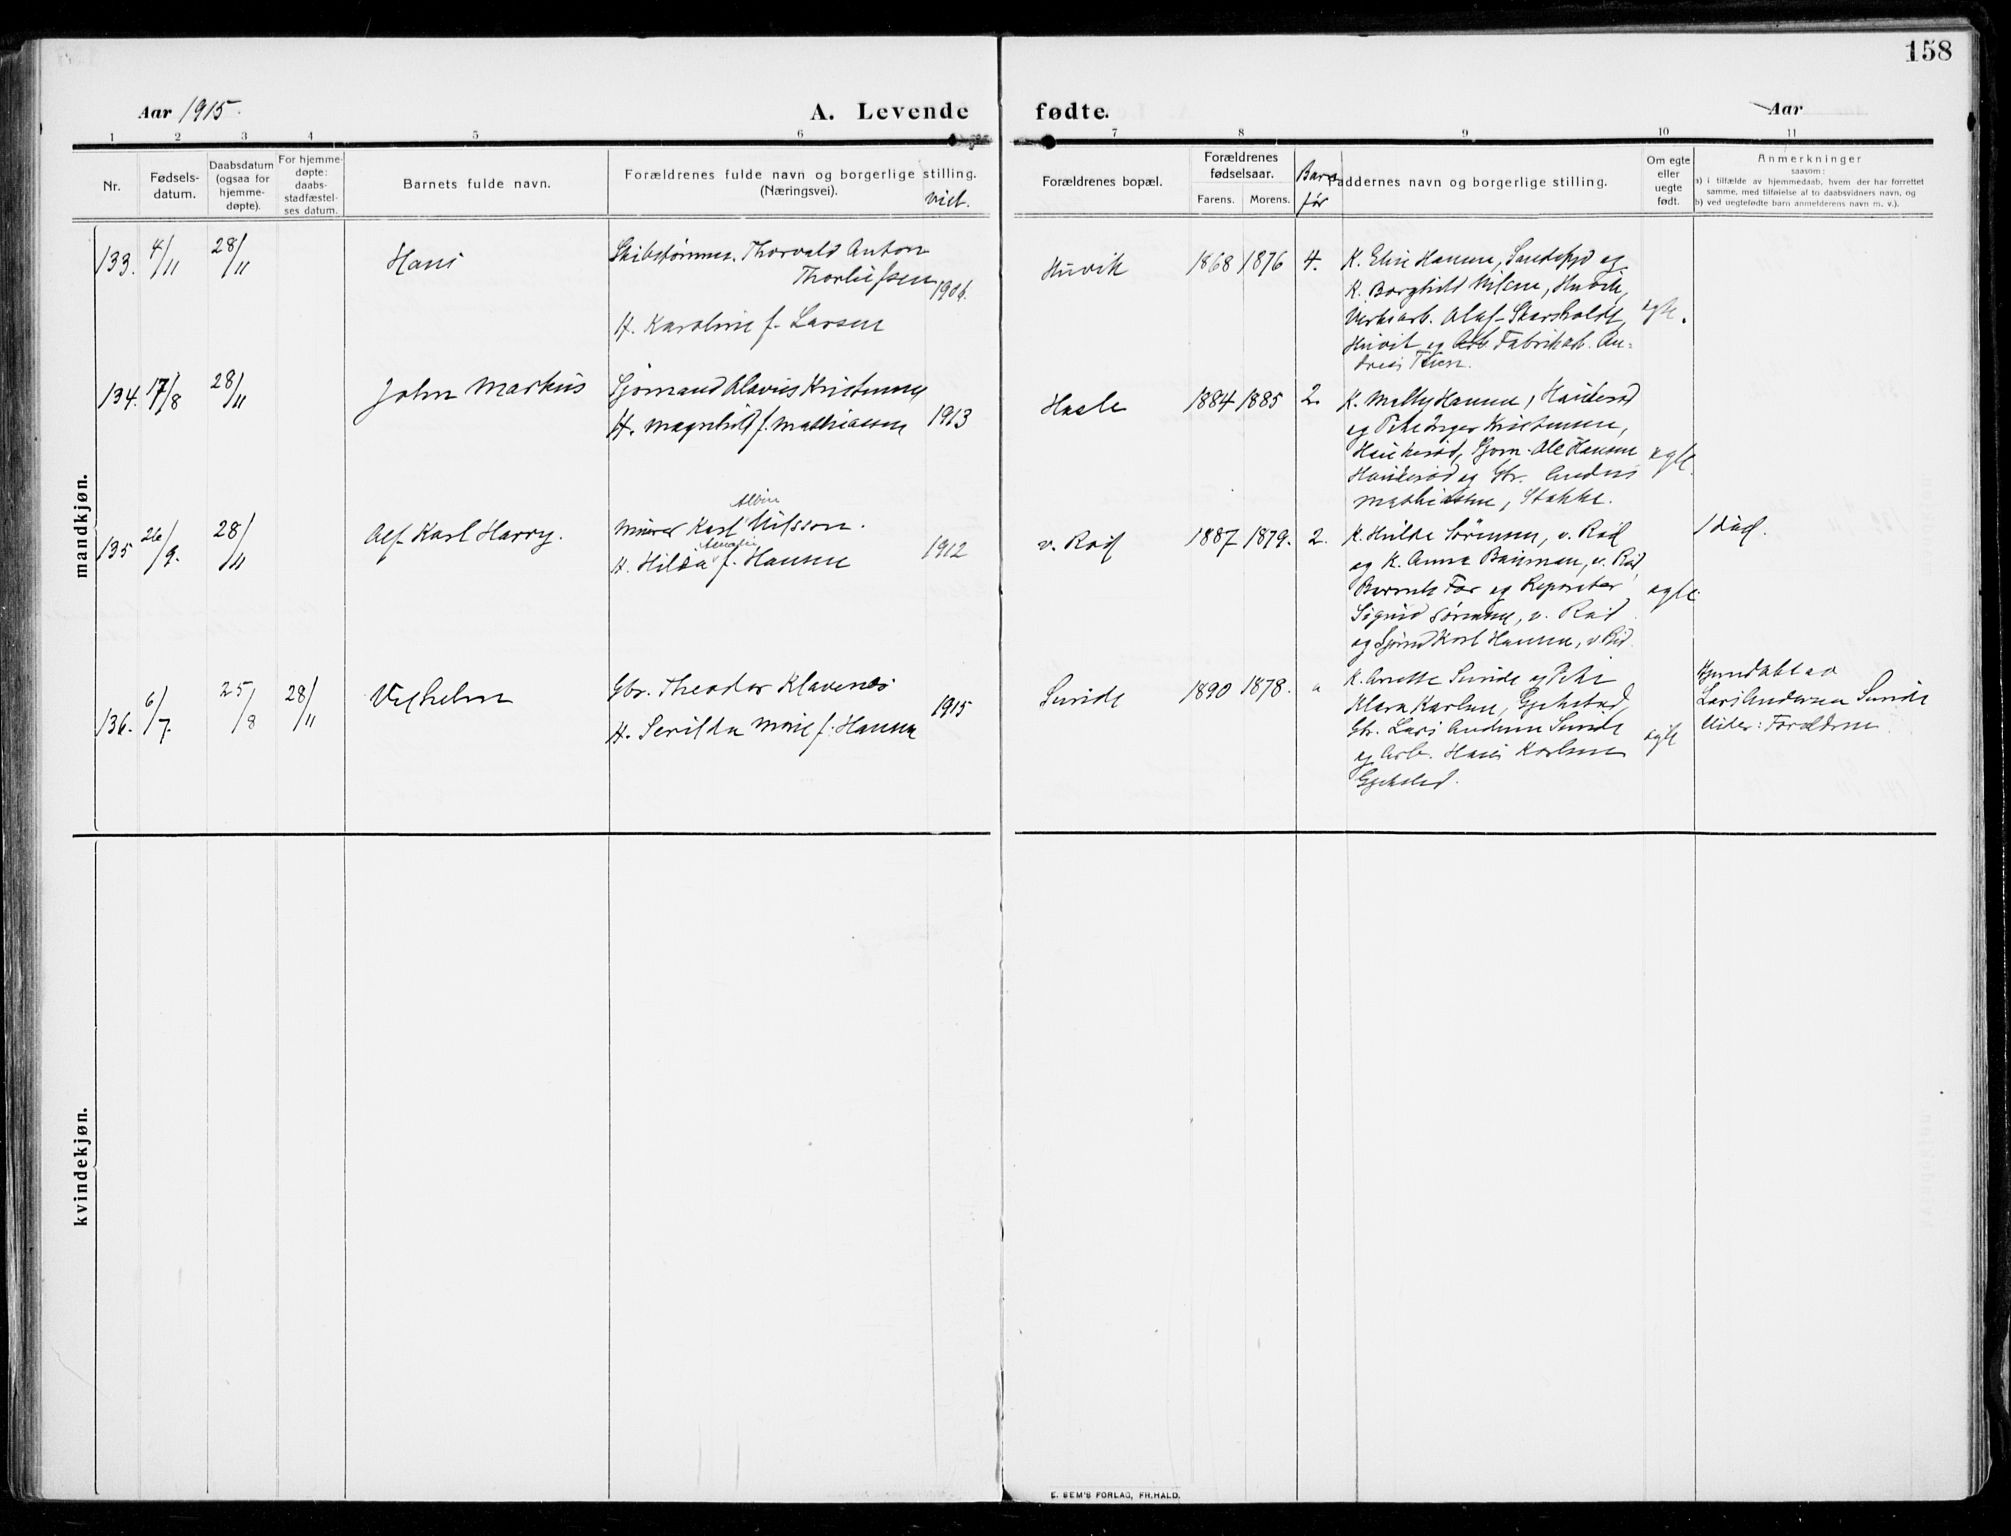 158
Aar 1915.
A. Levende fødte.
Aar
1 2 3 4 5 6 7 8 9 10 11
Nr.
Fødsels-
datum.
Daabsdatum
(ogsaa for
hjemme-
døpte).
For hjemme-
døpte:
daabs-
stadfæstel-
ses datum.
Barnets fulde navn.
Forældrenes fulde navn og borgerlige stilling.
(Næringsvei).
viet.
Forældrenes bopæl.
Forældrenes
fødselsaar.
Farens. Morens.
Barn
før
Faddernes navn og borgerlige stilling.
Om egte
eller
uegte
født.
Anmerkninger
saasom:
a) i tilfælde av hjemmedaab, hvem der har forrettet
samme, med tilføielse af to daabsvidners navn, og
b) ved uegtefødte barn anmelderens navn m. v.).
mandkjøn.
133. 4/11 28/11 Hans
Skibstømmer. Thorvald Anton
Thorleifsen 1906.
H. Karoline f. Larsen
Huvik 1868 1876 4.
K. Elise Hansen, Sandefjd og
K. Borghild Nilsen, Huvik,
Olaf
Huvik og Fabrikarb. An-
dreas
egte.
134. 17/8 28/11 John Markus
Sjømand Olavus Kristensen
H. Magnhild f. Mathiassen 1913
Hasle 1884 1885 2.
K. Molly Hansen, Haukerød
og Pike Inger Kristensen,
Haukerød, Sjøm. Ole Hansen
Haukerød og Gbr. Anders
Mathiassen, Stakke.
egte.
135 26/9. 28/11 Alf Karl Harry.
Albin
Murer Karl Nilsson.
H. Hilda f. Hansen 1912
v. Rød 1887 1879. 2.
K. Hulda Sørensen, v. Rød
og K. Anna v. Rød,
Barnets Far og Reparatør
Sigurd Sørensen, v. Rød
og Sjømd Karl Hansen, v. Rød.
egte.
1 død.
136. 6/7. 25/8 28/11 Vilhelm
Gbr. Theodor Klavenes
H. Serilda Marie f. Hansen 1915
Sunde 1890 1878. 0
K. Anette Sunde og Pike
Klara Karlsen, Gjekstad,
Gbr. Lars Andersen Sunde
og Arb. Hans Karlsen
Gjekstad.
egte
Hjemdøbt av
Lars Andersen Sunde
Vidner: Forældrene
kvindekjøn.
E. SEM'S FORLAG, FR.HALD.